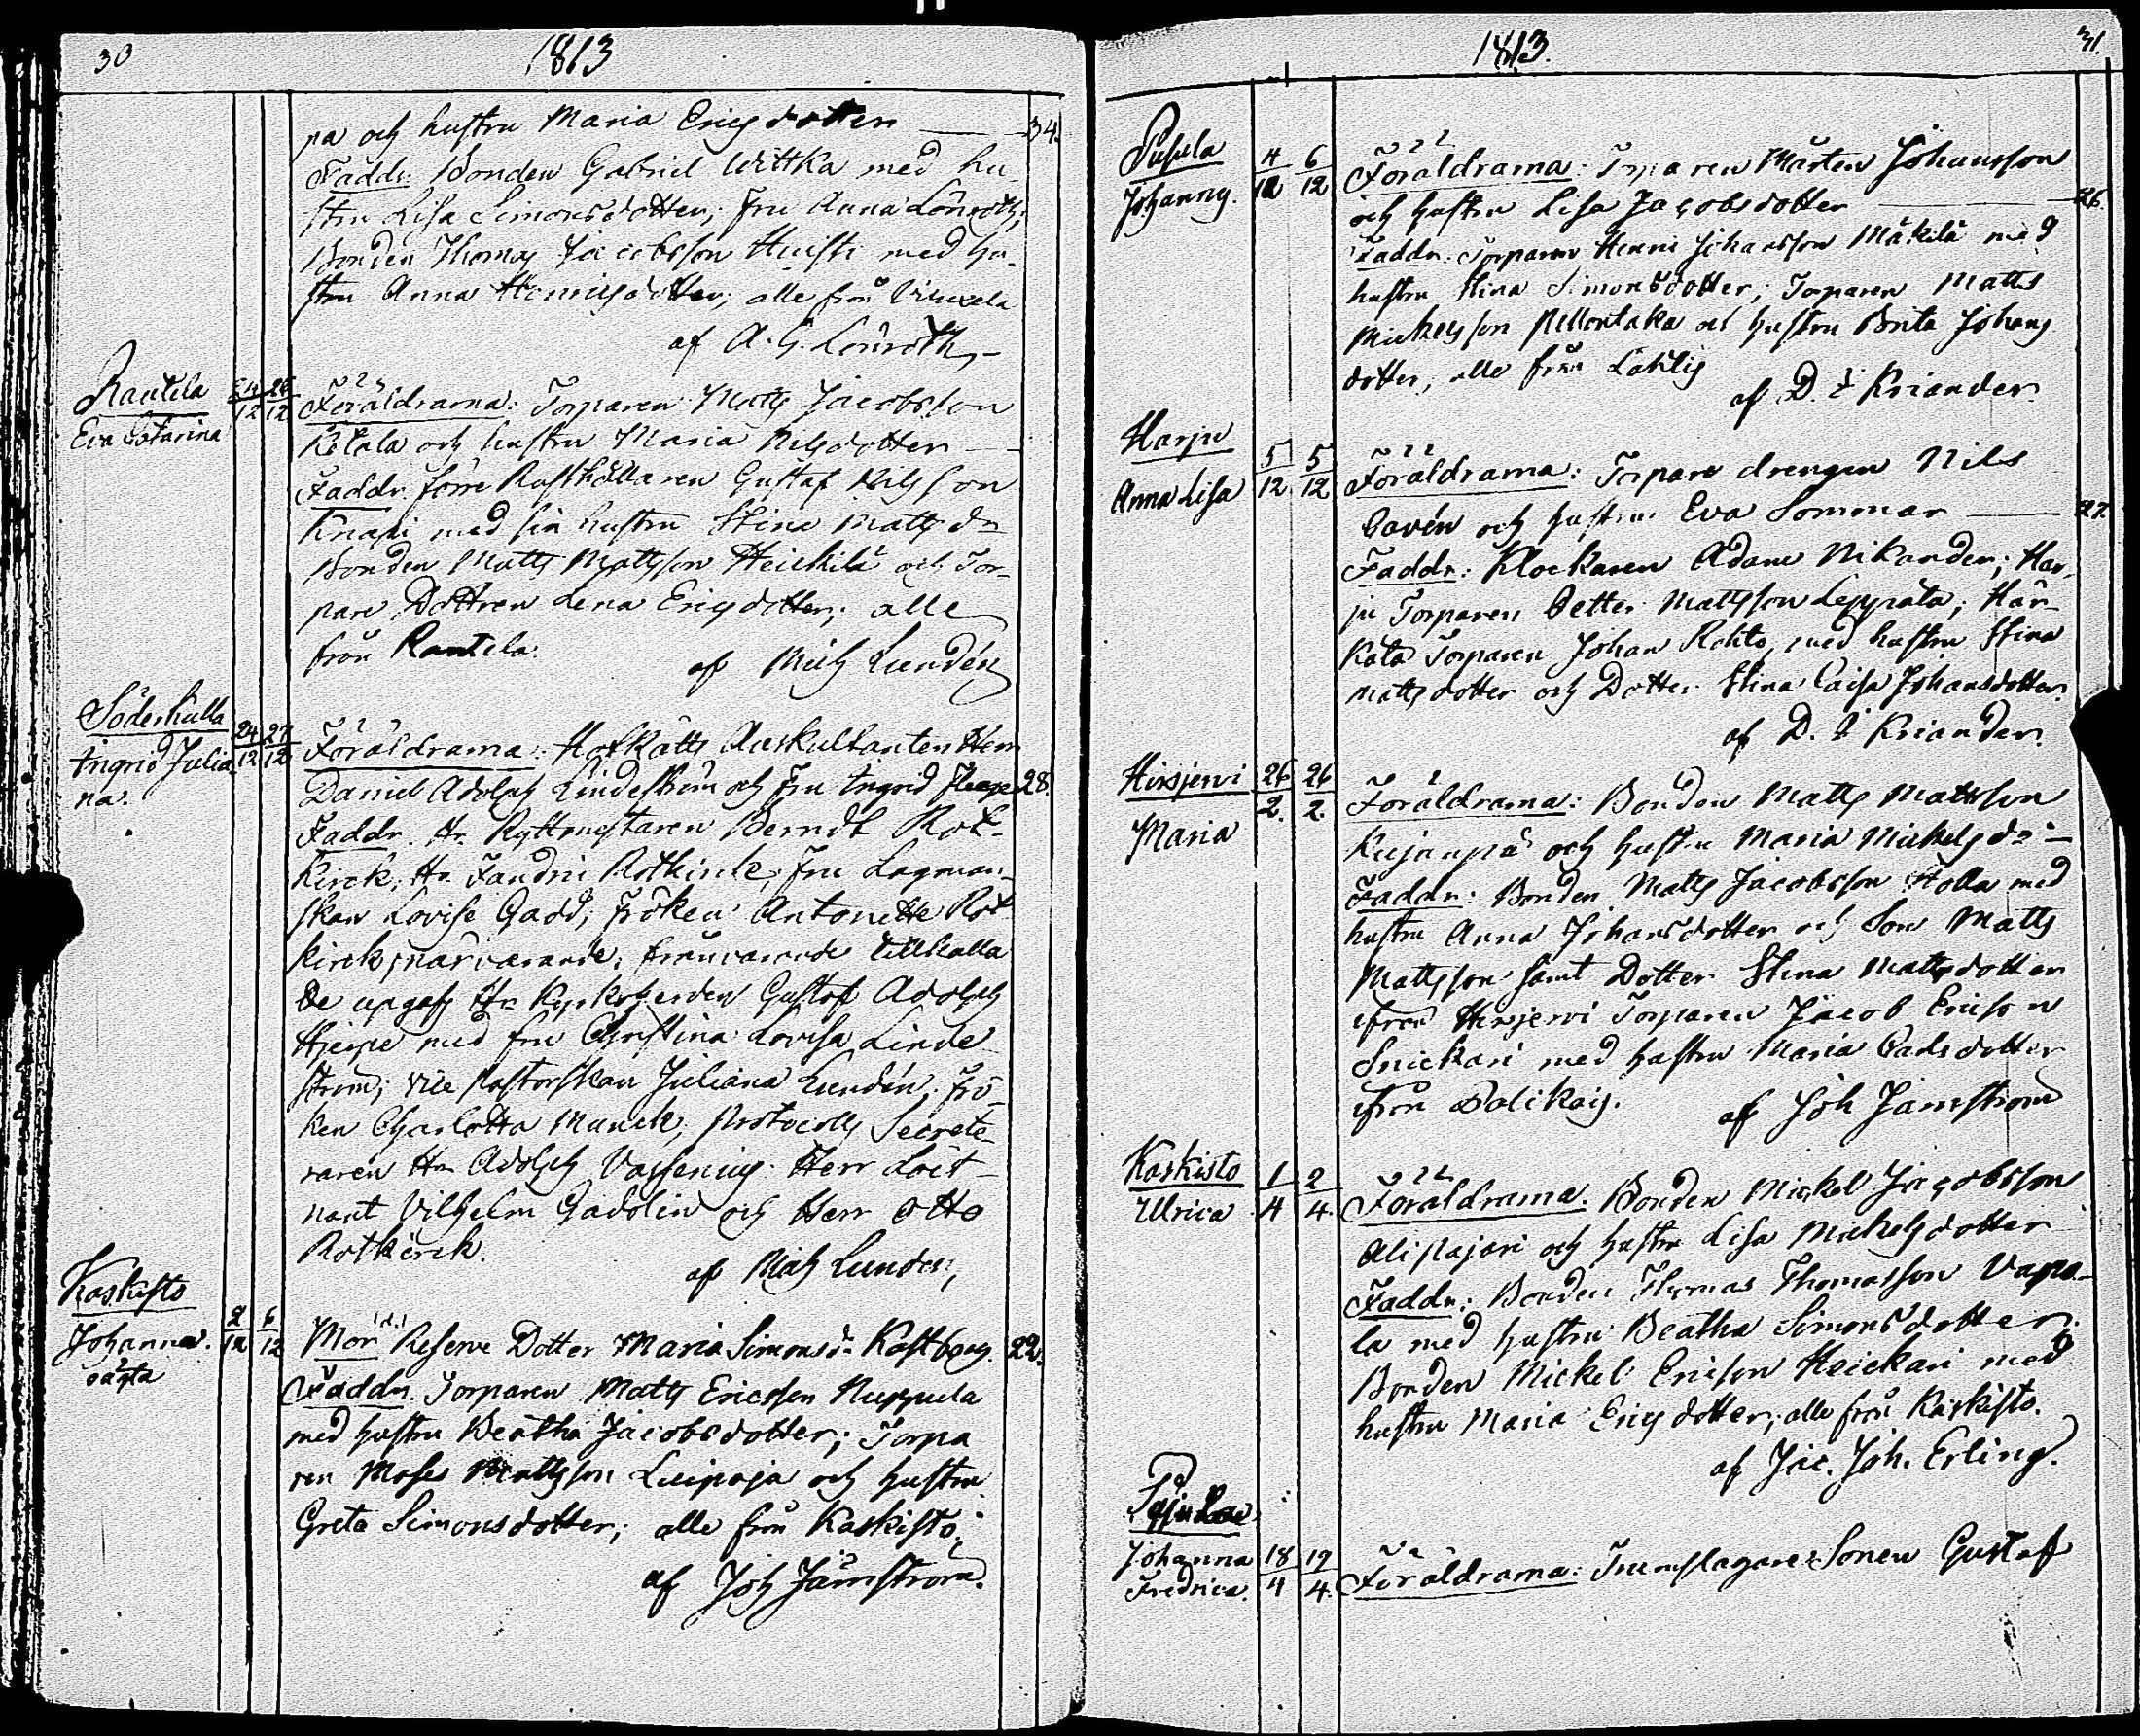 30
1813
pa och hustru Maria Ericsdotter 34.
Faddr. Bonden Gabriel Wittka med hu-
stru Lisa Simonsdotter, fru Anna Lönroth,
Bonden Thomas Jacobsson Huisti med hu-
stru Anna Henricsdotter, alle från
af A. G. Lönroth,
Rantela
Eva Catarina
24 26
12 12
Föräldrarna: Torparen Matts Jacobsson
Ketala och hustru Maria Nilsdotter
Faddr. förre Rusthållaren Gustaf Nilsson
Knapi med sin hustru Stina Matts dr
Bonden Matts Mattsson Heickilä och Tor-
pare Dottren Lena Ericsdotter; alle
från Rantela.
af Mich Lundén
Söderkulla
Ingrid Julia
na.
24 27
12 12
Föräldrarna: Hofrätts Auskultanten Herr
Daniel Adolph Lindeström och Fru Ingrid 28.
Faddr. Hr Ryttmestaren Berndt Rot-
kirck, Hr Fändric Rotkirck, Fru Lagman-
skan Lovise Gadd; Fröken Antonette Rot-
kirck närvarande; frånvarande tillkalla
de Hr Kyrkoherden Gustaf Adolph
Hjeipe med fru Christina Lovisa Linde
ström; vice Pastorskan Juliana Lundén, Frö-
ken Charlotta Munck, Protocolls Secrete-
raren Hr Adolph Vassenius. Herr Löit-
nant Vilhelm Gadolin och Herr Otto
Rotkirck.
af Mich Lunden,
Kaskisto
Johanna.
oäkta
2 6
12 12
Mor Reserve Dotter Maria Simonsdr Kastberg. 22.
Faddr. Torparen Matts Ericsson Nuppula
med hustru Beatha Jacobsdotter; Torpa
ren Moses Mattsson Luipaja och hustru
Greta Simonsdotter; alle från Kaskisto.
af Joh Jämström.
1813.
31.
Pusula
Johannes.
4 6
12 12
Föräldrarna: Torparen Mårten Johansson
och hustru Lisa Jacobsdotter 26.
Faddr. Torparen Henric Johansson Mäkilä med
hustru Stina Simonsdotter; Torparen Matts
Mickelsson Pellontaka och hustru Brita Johans
dotter; alle från
af D. J Kriander.
Harju
Anna Lisa
5 5
12 12
Föräldrarna: Torpare drengen Nils
Cavén och hustru Eva Sommar 27.
Faddr: Klockaren Adam Nikander; Har-
ju Torparen Petter Mattsson Leppäta; Här-
käta Torparen Johan Rohto, med hustru Stina
Mattsdotter och Dotter Stina Caisa Johansdotter.
af D. J Kriander.
Hirsjervi
Maria
26 26
2. 2.
Föräldrarna: Bonden Matts Mattsson
Kujanpä och hustru Maria Mickels dr
Faddr: Bonden Matts Jacobsson Holla med
hustru Anna Johansdotter och Son Matts
Mattsson samt Dotter Stina Mattsdotter
från Hirsjervi Torparen Jacob Ericson
Snickari med hustru Maria Carlsdotter
från Palikais.
af Joh Jämström
Kaskisto
Ulrica
1 2
4 4.
Föräldrarna. Bonden Mickel Jacobsson
Alipajari och hustru Lisa Mickelsdotter
Faddr: Bonden Thomas Thomasson Vapa-
la med hustru Beatha Simonsdotter.
Bonden Mickel Ericson Heickari med
hustru Maria Ericsdotter; alle från Kaskisto.
af Jac. Joh. Erling.
Johanna
Fredrica.
18 19
4 4.
Föräldrarna: Trumslagare Sonen Gustaf